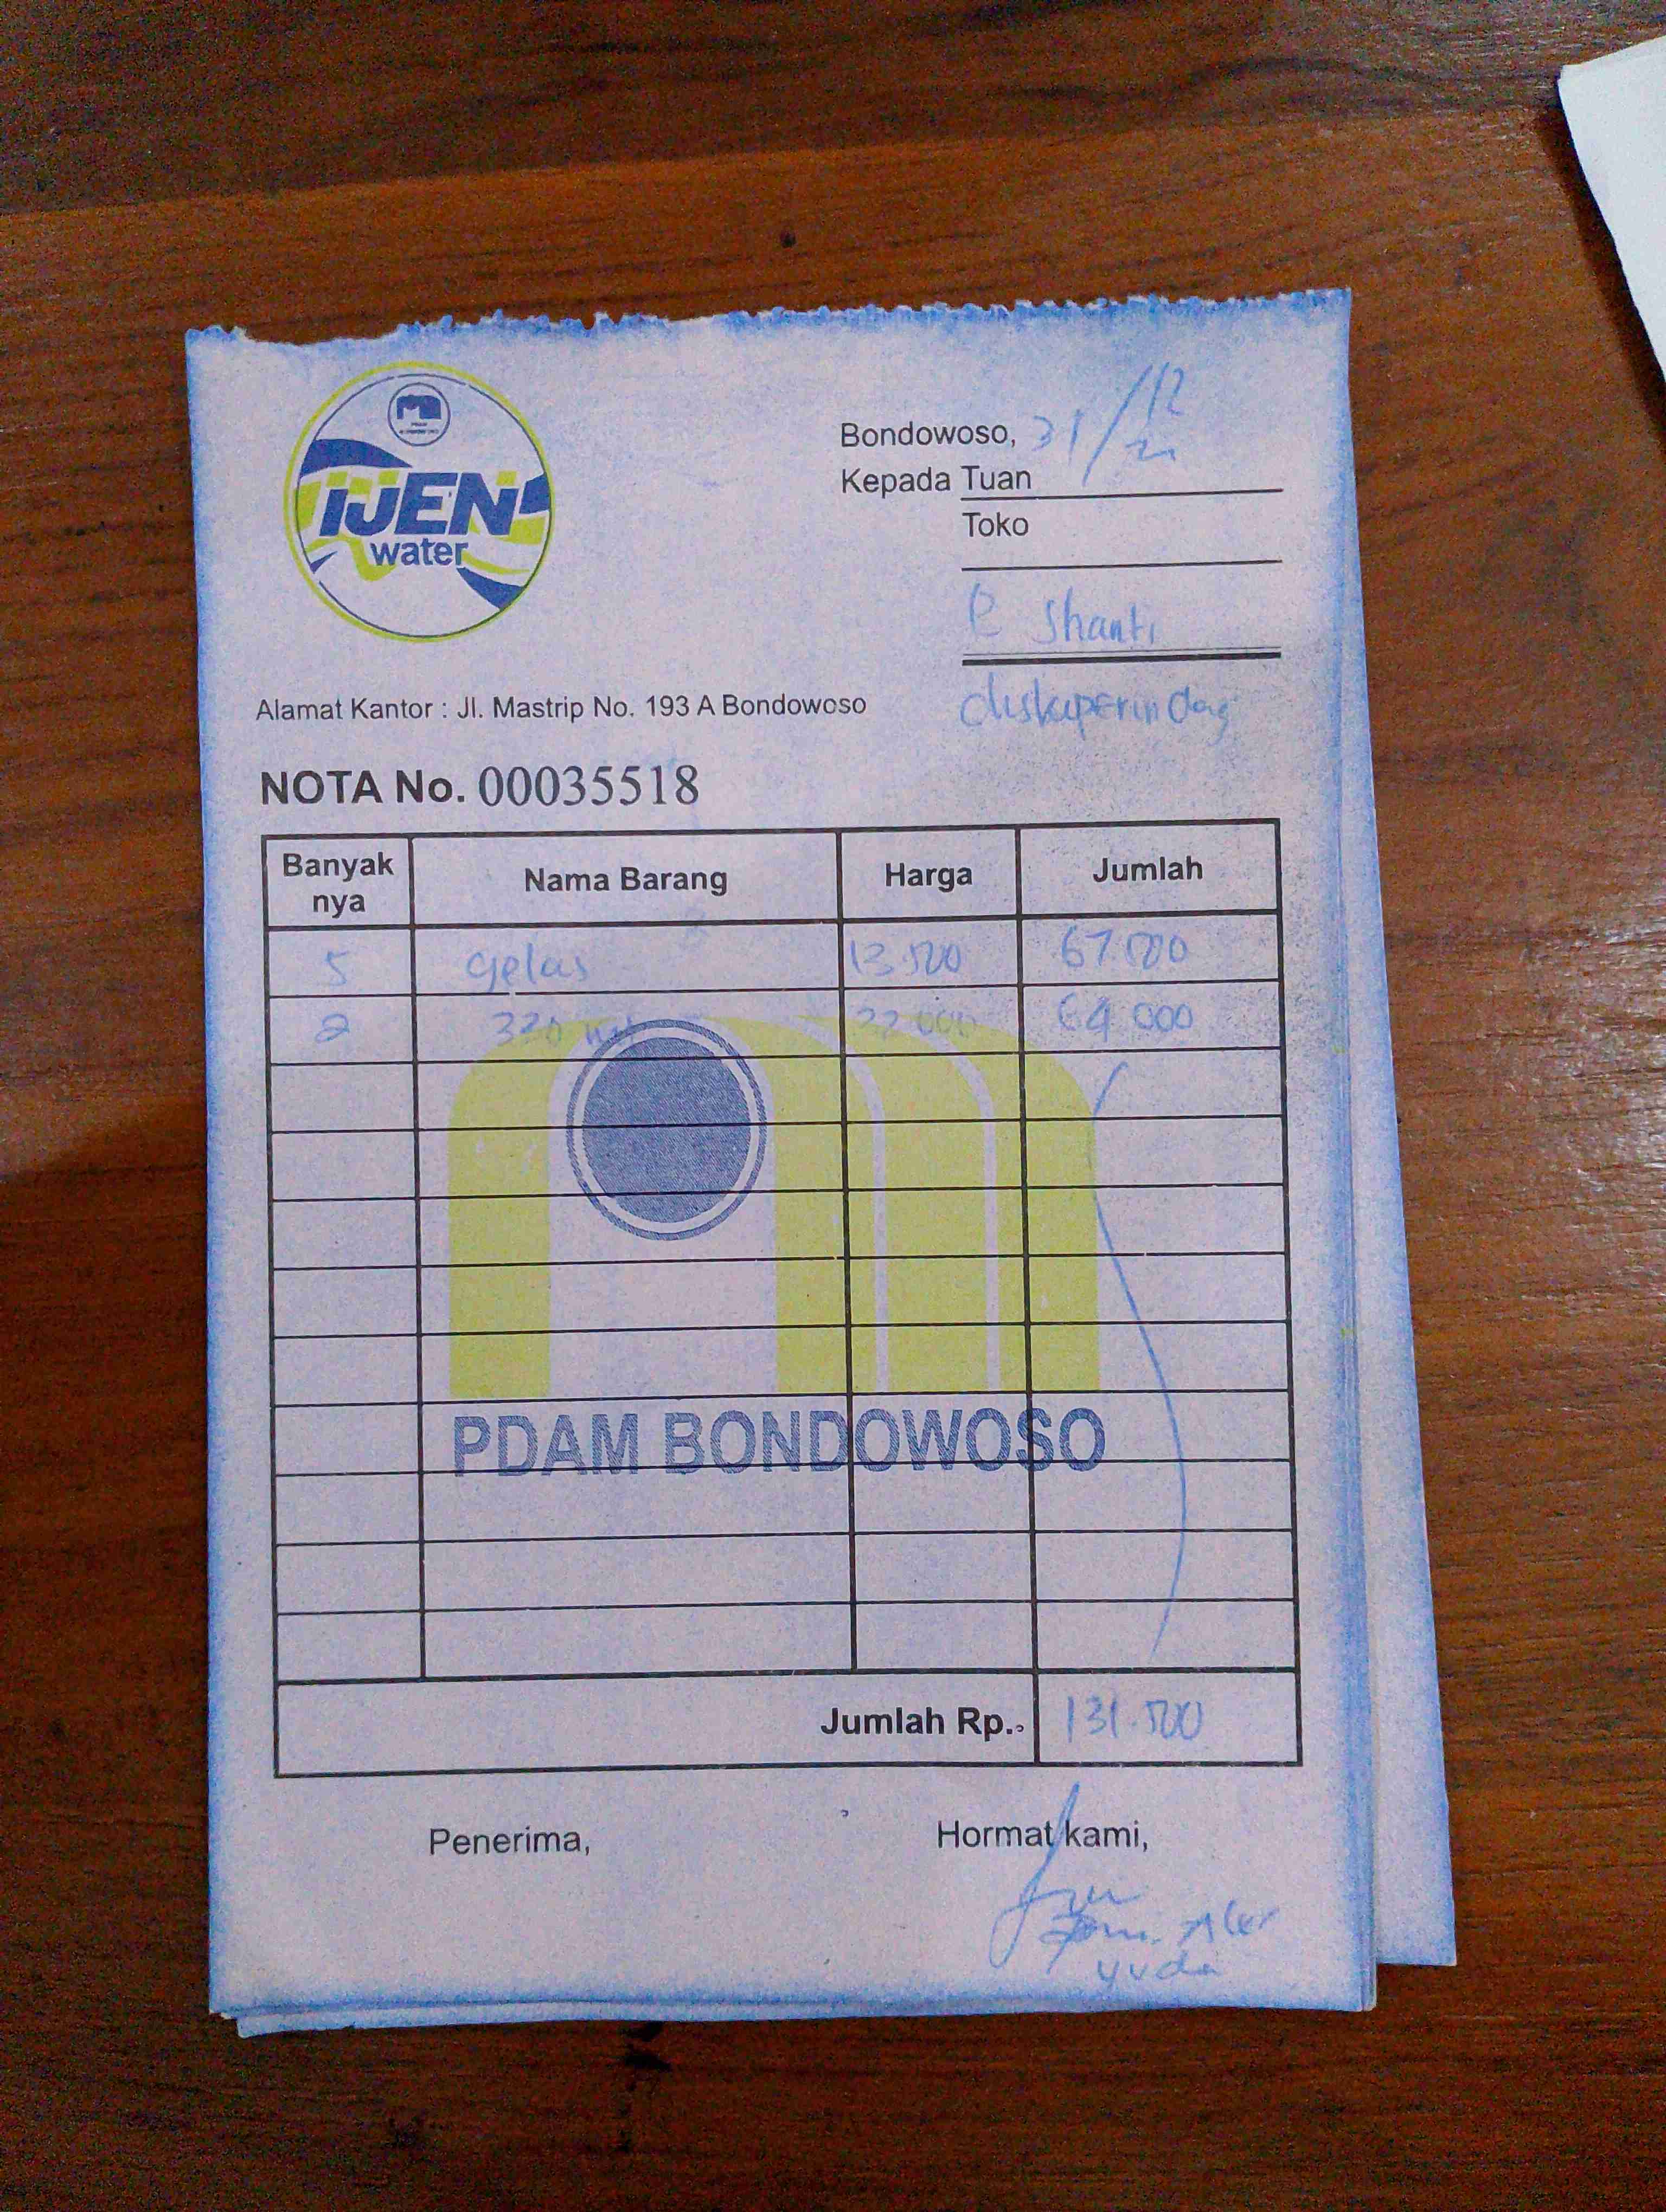 IJEN
water
Bondowoso, 31/12
Kepada Tuan
Toko
P Shanti
diskoperindag
Alamat Kantor : Jl. Mastrip No. 193 A Bondowoso
NOTA No. 00035518
Banyak nya Nama Barang Harga Jumlah
5 gelas 13.500 67.500
2 330 ml 32.000 64.000
PDAM BONDOWOSO
Jumlah Rp. 131.500
Penerima, Hormat kami,
yuda